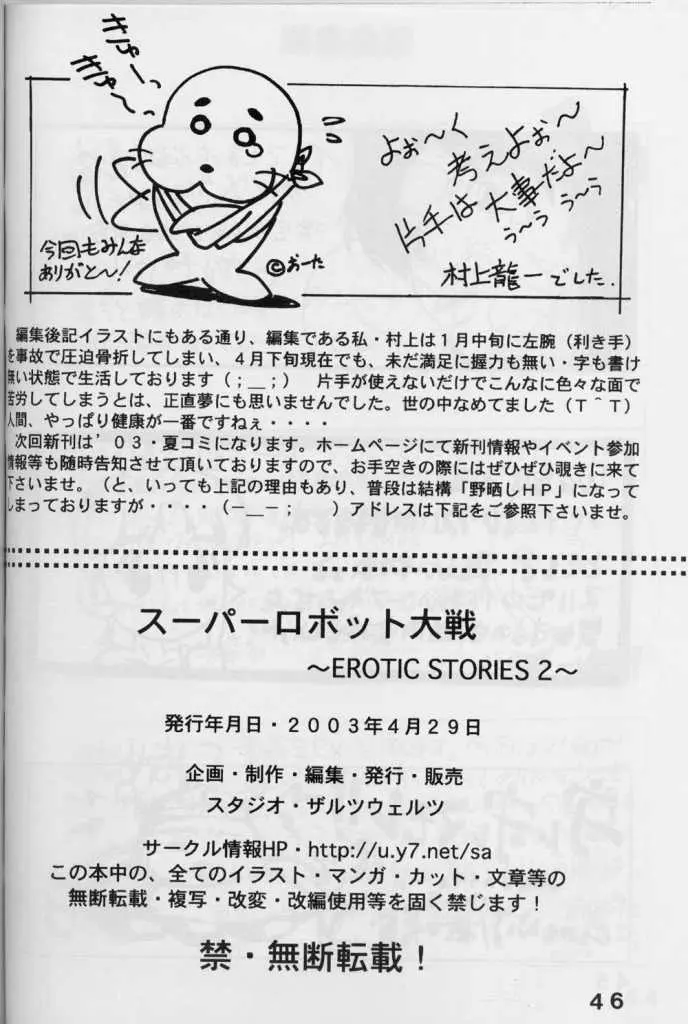 きゅーっ
きゅ〜っ
よぉ〜く
考えよぉ〜
片手は大事だよ〜
う〜ら う〜ら
今回もみんな
ありがと〜!
©おーた
村上龍一でした.
編集後記イラストにもある通り、編集である私・村上は1月中旬に左腕(利き手)
を事故で圧迫骨折してしまい、4月下旬現在でも、未だ満足に握力も無い・字も書け
無い状態で生活しております(;__;) 片手が使えないだけでこんなに色々な面で
苦労してしまうとは、正直夢にも思いませんでした。世の中なめてました(T^T)
人間、やっぱり健康が一番ですねぇ・・・・
次回新刊は'03・夏コミになります。ホームページにて新刊情報やイベント参加
情報等も随時告知させて頂いておりますので、お手空きの際にはぜひぜひ覗きに来て
下さいませ。(と、いっても上記の理由もあり、普段は結構「野晒しHP」になって
しまっておりますが・・・・(−__−; )アドレスは下記をご参照下さいませ。
スーパーロボット大戦
〜EROTIC STORIES 2〜
発行年月日・2003年4月29日
企画・制作・編集・発行・販売
スタジオ・ザルツウェルツ
サークル情報HP・http://u.y7.net/sa
この本中の、全てのイラスト・マンガ・カット・文章等の
無断転載・複写・改変・改編使用等を固く禁じます!
禁・無断転載!
46